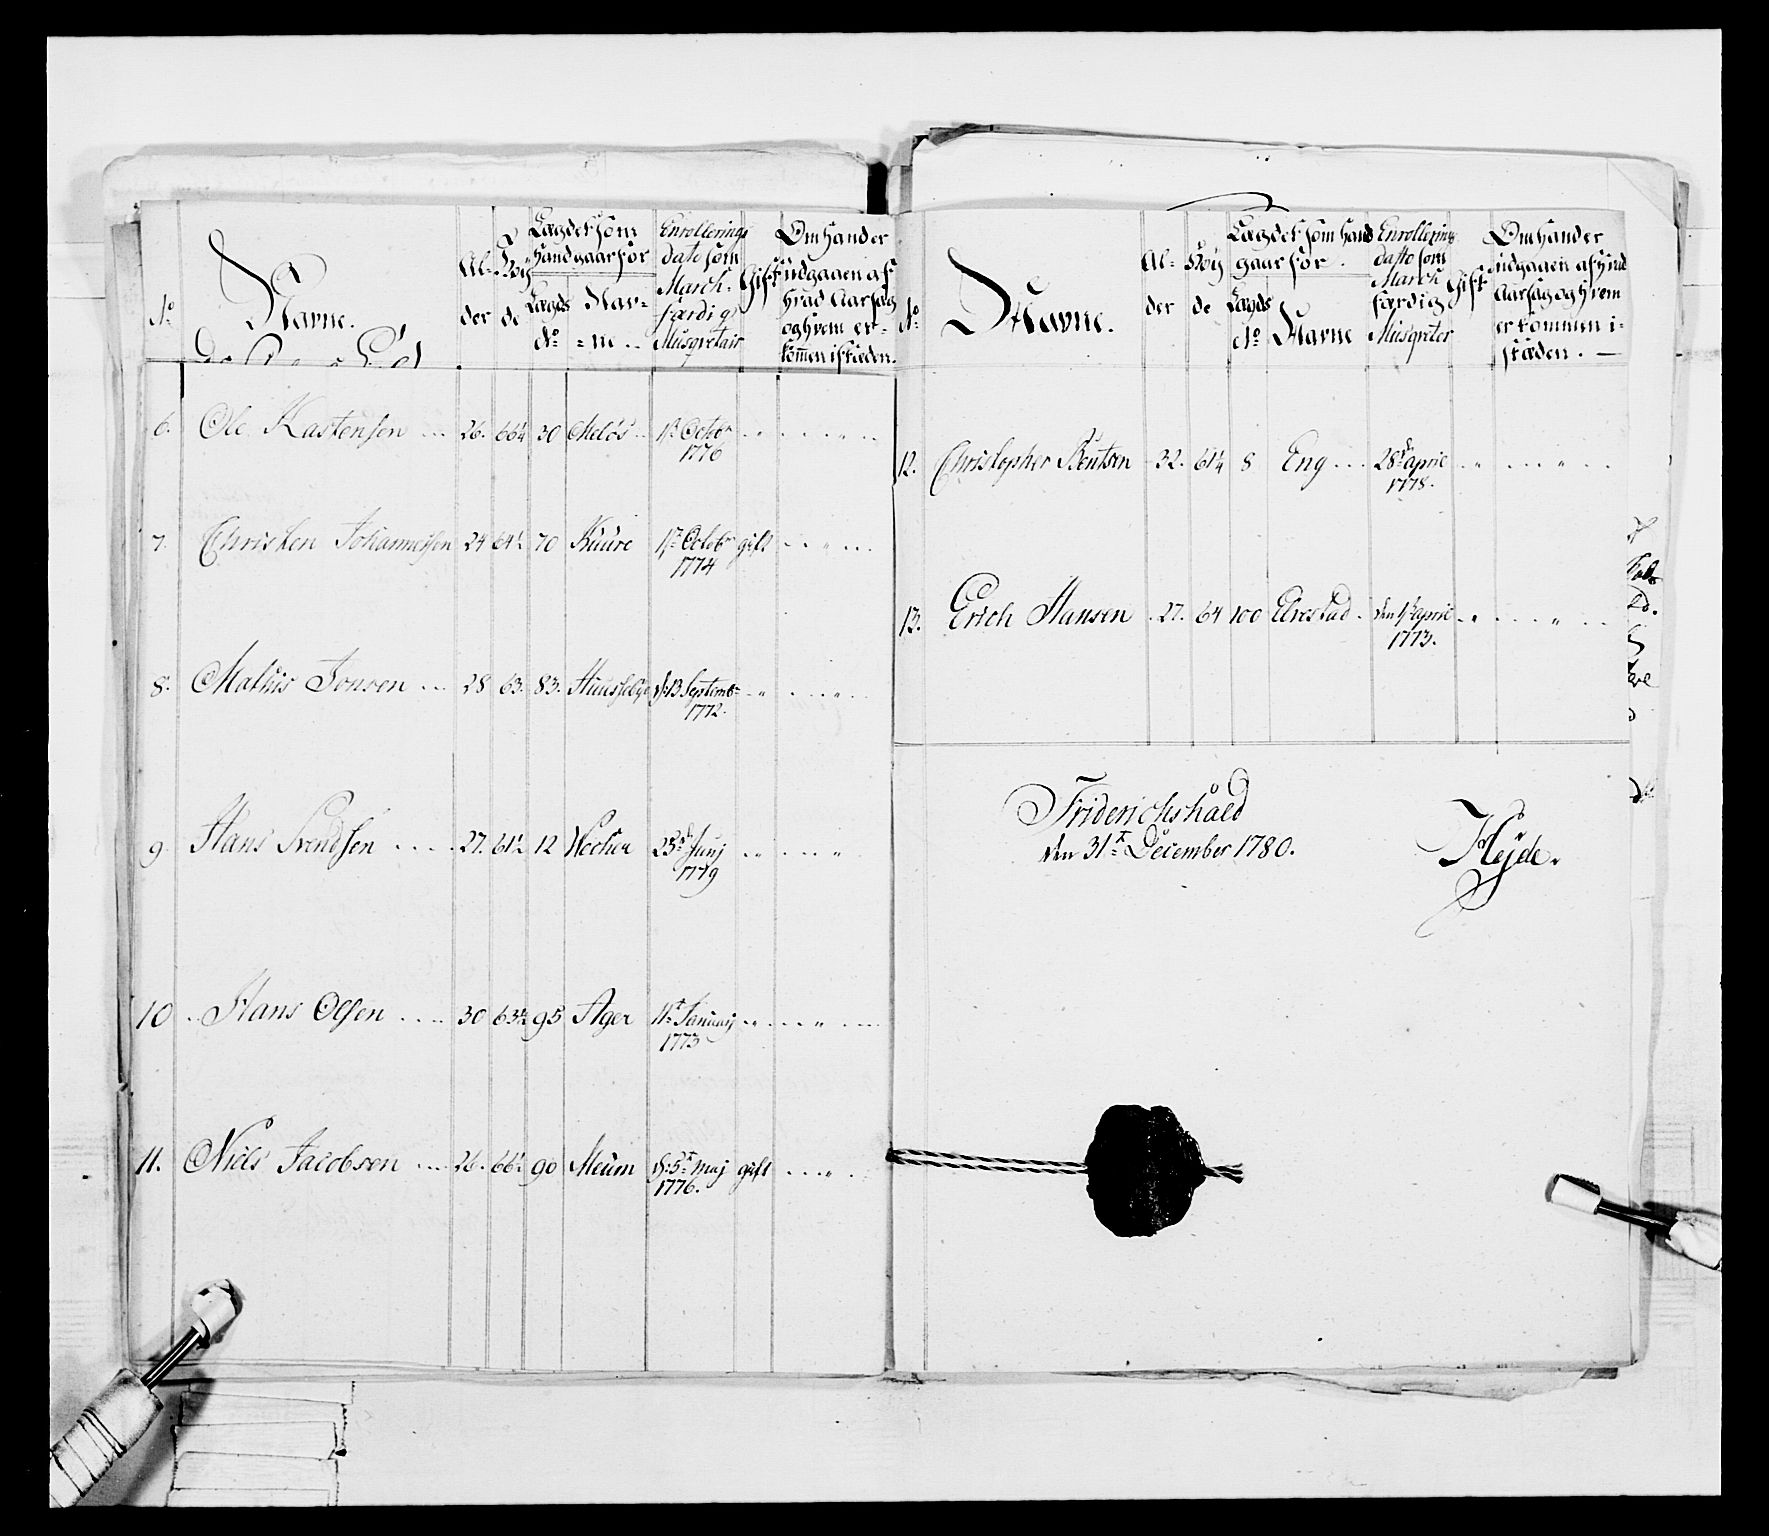 No
Navne.
Al-
der
Høÿ
de
Lægdet som
Hand gaar for
Lægds
No
Nav-
ne
Enrollerings
dato som
March-
færdig
Musqvetair
Gift
Om Hand er
udgaaen af
hvad Aarsag
og hvem er-
kommen i stæden.
6. Ole Kastensen 26. 66¼ 30 Meløs 1t Octobr
1776
7. Christen Johannessen 24 64½ 70 Kuure 17 Octobr gift
1774
8. Mathis Jonsen 28 63. 83. d: 13 Septembr
1772.
9 Hans Svendsen 27. 61½ 12 23d Junj
1779
10 Hans Olsen 30 63¾ 95 Ager 11t Januarj
1773
11. Niels Jacobsen 26. 66½ 90 Meum d: 5t Maj gift
1776.
No
Navne.
Al-
der
Høÿ
de
Lægdet som Hand
gaar for.
Lægds
No
Navne
Enrollerings
datto som
March
færdig
Musqveter
Gift
Om Hand er
udgaaen af hvad
Aarsag og hvem
er kommen i-
stæden.
12. Christopher Bentsen 32. 61¼ 8 Eng 28d april
1778.
13. Erich Hansen 27. 64 100 Elvestad den 1t april
1773.
Friderichshald
den 31t December 1780.
Hejde.